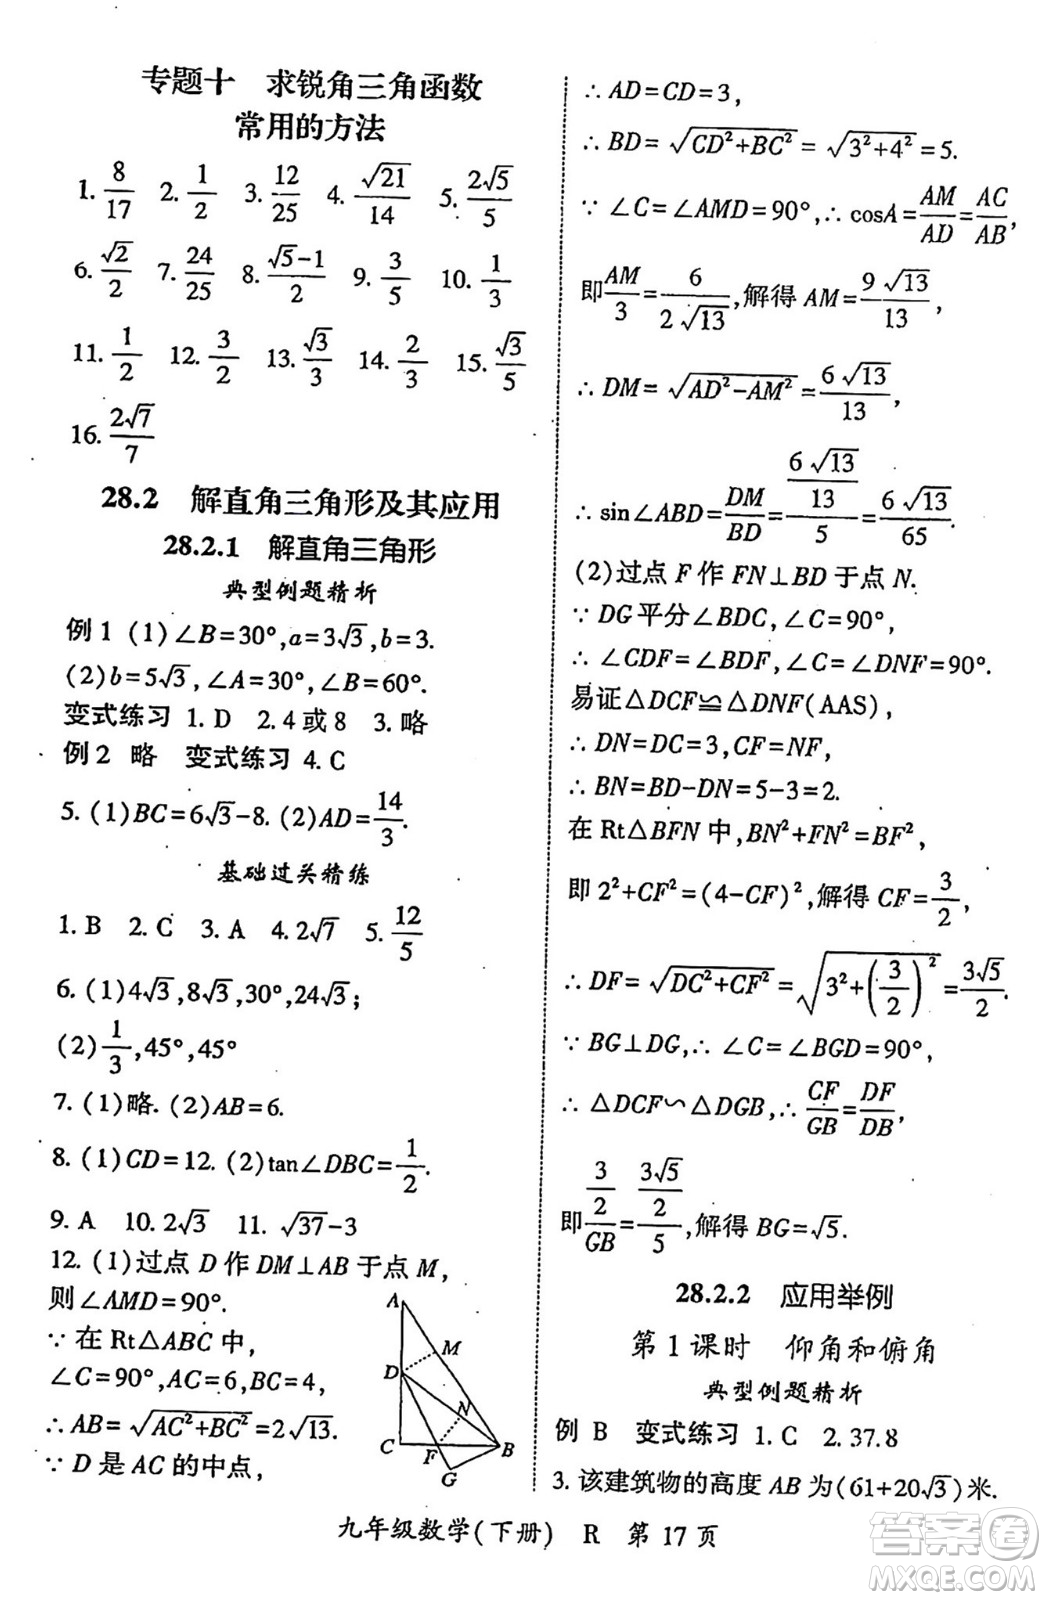 专题十　求锐角三角函数
常用的方法
1. 8/17　2. 1/2　3. 12/25　4. √21/14　5. 2√5/5
6. √2/2　7. 24/25　8. (√5-1)/2　9. 3/5　10. 1/3
11. 1/2　12. 3/2　13. √3/3　14. 2/3　15. √3/5
16. 2√7/7
28.2　解直角三角形及其应用
28.2.1　解直角三角形
典型例题精析
例1 (1)∠B=30°,a=3√3,b=3.
(2)b=5√3,∠A=30°,∠B=60°.
变式练习 1. D　2. 4 或 8　3. 略
例2 略　变式练习 4. C
5. (1)BC=6√3-8. (2)AD=14/3.
基础过关精练
1. B　2. C　3. A　4. 2√7　5. 12/5
6. (1)4√3,8√3,30°,24√3;
(2)1/3,45°,45°
7. (1)略. (2)AB=6.
8. (1)CD=12. (2)tan∠DBC=1/2.
9. A　10. 2√3　11. √37-3
12. (1)过点 D 作 DM⊥AB 于点 M,
则∠AMD=90°.
∵ 在 Rt△ABC 中,
∠C=90°,AC=6,BC=4,
∴AB=√(AC²+BC²)=2√13.
∵ D 是 AC 的中点,
A
M
D
N
C
F
B
G
∴ AD=CD=3,
∴ BD=√(CD²+BC²)=√(3²+4²)=5.
∵ ∠C=∠AMD=90°,∴ cosA=AM/AD=AC/AB,
即AM/3=6/(2√13),解得 AM=9√13/13,
∴ DM=√(AD²-AM²)=6√13/13,
∴ sin∠ABD=DM/BD=(6√13/13)/5=6√13/65.
(2)过点 F 作 FN⊥BD 于点 N.
∵ DG 平分∠BDC,∠C=90°,
∴ ∠CDF=∠BDF,∠C=∠DNF=90°.
易证△DCF≌△DNF(AAS),
∴ DN=DC=3,CF=NF,
∴ BN=BD-DN=5-3=2.
在 Rt△BFN 中,BN²+FN²=BF²,
即 2²+CF²=(4-CF)²,解得 CF=3/2,
∴ DF=√(DC²+CF²)=√(3²+(3/2)²)=3√5/2.
∵ BG⊥DG,∴ ∠C=∠BGD=90°,
∴ △DCF∽△DGB,∴CF/GB=DF/DB,
即(3/2)/GB=(3√5/2)/5,解得 BG=√5.
28.2.2　应用举例
第 1 课时　仰角和俯角
典型例题精析
例 B　变式练习 1. C　2. 37.8
3. 该建筑物的高度 AB 为(61+20√3)米.
九年级数学(下册)　R　第 17 页
答案圈
MXQE.COM